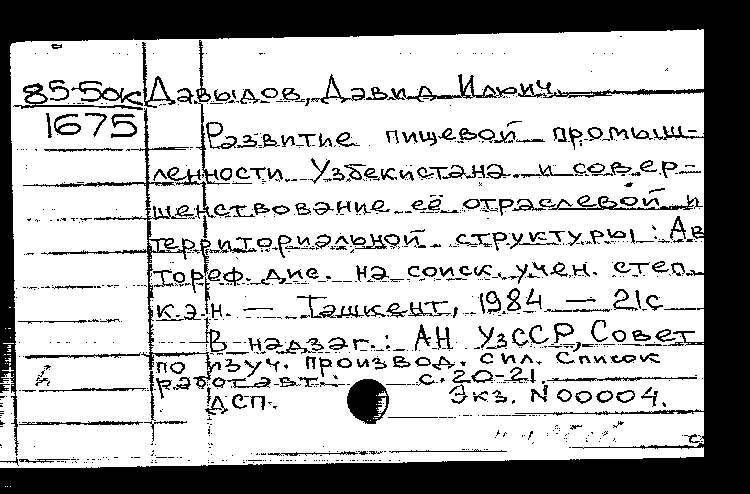 85-5ок Давыдов, Давид Ильич.
1675
Развитие пищевой промыш-
ленности Узбекистана и совер-
шенствование её отраслевой и
территориальной структуры: Ав
тореф. дис. на соиск. учен. степ.
к.э.н. — Ташкент, 1984 — 21с
В надзаг.: АН УзССР, Совет
по изуч. производ. сил. Список
работ авт.: с. 20-21.
ДСП. Экз. N00004.